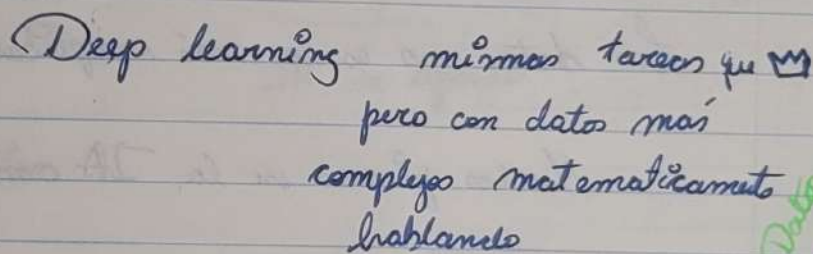 Deep learning mismas tareas que
pero con datos más
complejos matematicamente
hablando
Datos